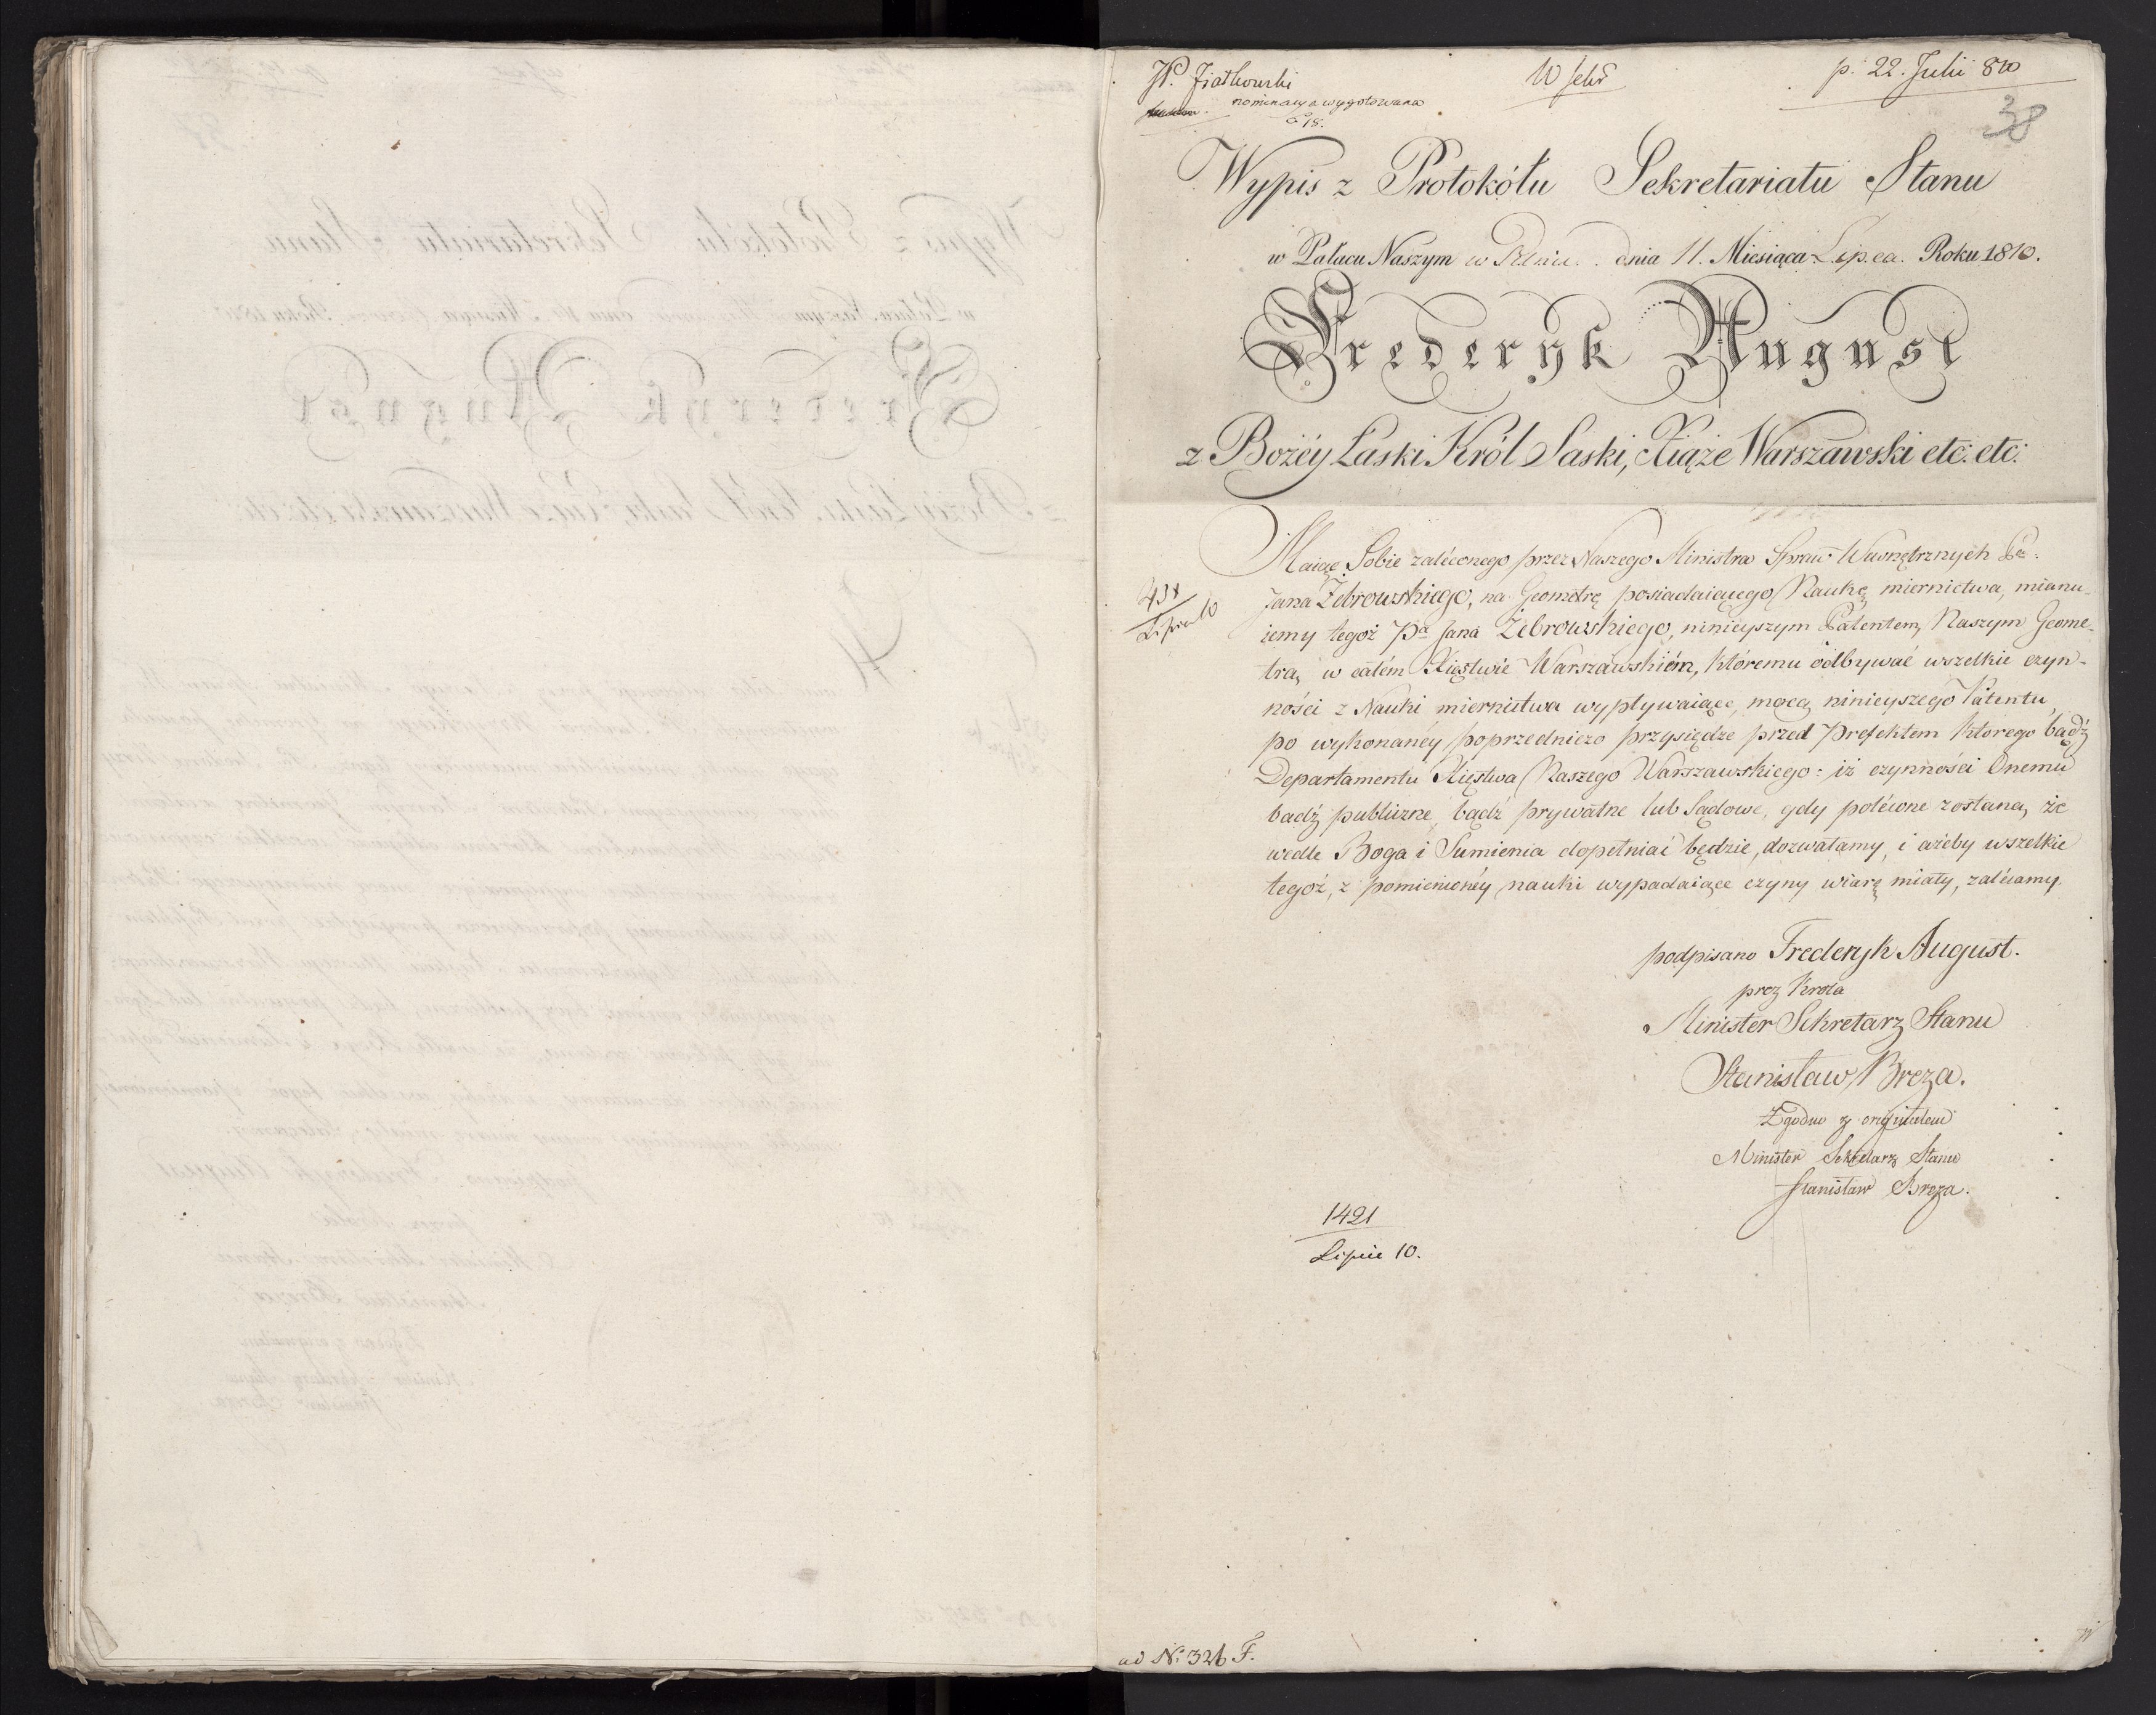 JP. Ziatkowski
nominacya wygotowana
d 18.
W sekr
p. 22. Julii 810
38
Wypis z Protokółu Sekretariatu Stanu
w Pałacu Naszym w dnia 11. Miesiąca Lipca. Roku 1810.
Frederyk August
z Bożéy Łaski Król Saski, Xiąże Warszawski etc: etc:
Maiąc Sobie zaléconego przez Naszego Ministra Spraw Wewnętrznych
Jana Żebrowskiego, na Geometrę posiadaiącego Naukę miernictwa, mianu-
iemy tegoż Pa Jana Żebrowskiego, ninieyszym Patentem, Naszym Geome-
trą, w całém Xięstwie Warszawskiém, któremu odbywać wszelkie czyn-
ności z Nauki miernictwa wypływaiące, mocą ninieyszego Patentu,
po wykonanéy poprzedniczo przysiędze przed Prefektem ktorego bądź
Departamentu Xięstwa Naszego Warszawskiego: iż czynności Onemu
bądź publiczne, bądź prywatne lub Sądowe, gdy polécone zostaną, że
wedle Boga i Sumienia dopełniać będzie, dozwalamy, i ażeby wszelkie
tegoż, z pomienionéy nauki wypadaiące czyny wiarę miały, zalécamy.
438
Lipca 10
podpisano Frederyk August.
prez Krola
Minister Sekretarz Stanu
Stanisław Breza.
Zgodno z originalem
Minister Sekretarz Stanu
Stanisław Breza.
1421
Lipca 10.
ad No 326 F.